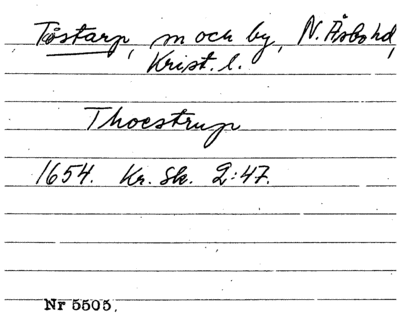 Töstarp, m och by, N. Åsbo hd,
Krist. l.
Thoestrup
1654. Kr. Sk. 2:47.
Nr 5505.